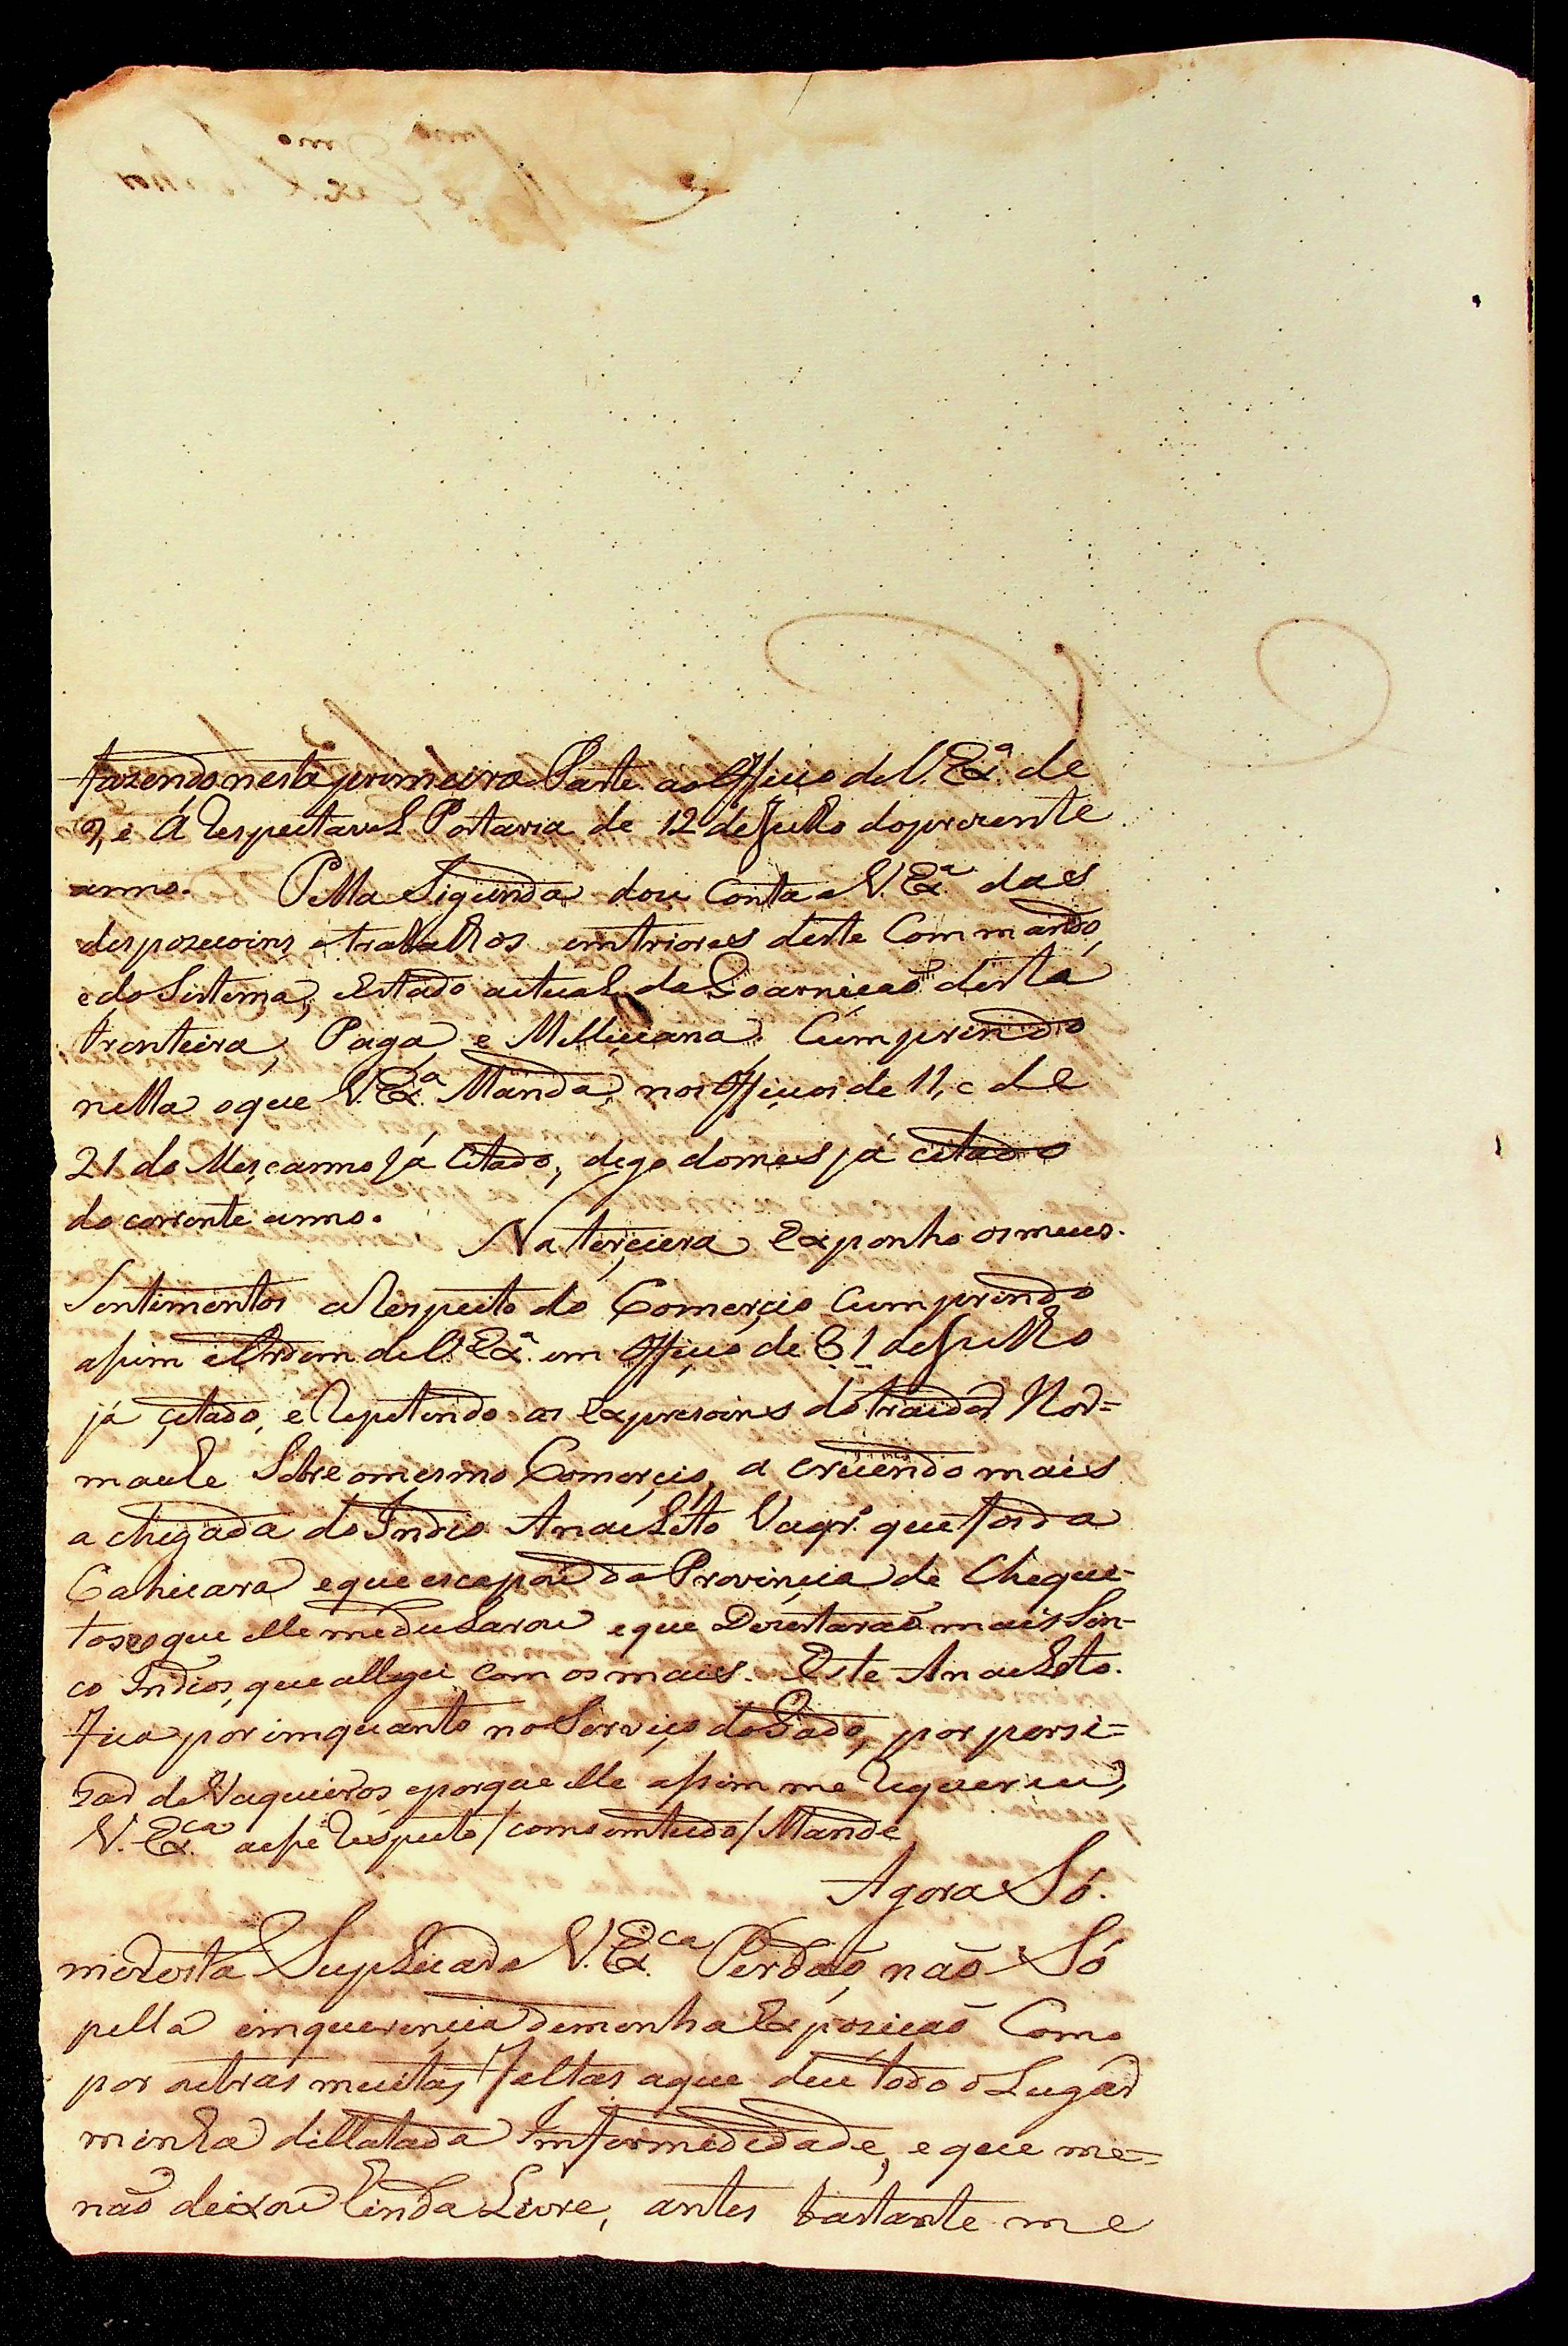 fazendo nesta primeira Parte ao Officio de V. Exª. de
9, e á Respectavel Portaria de 12 de Julho do prezente
anno. Pella Sigunda dou Conta a V. Exª. das
despozecoins e trabalhos emtriores deste Commando,
e do Sistema, estado actual da Goarnicaõ desta
fronteira, Paga, e Milliciana. Cumprindo
nella o que V. Exª. Manda, nos Officios de 11, e de
21 do Mes, e anno já Citado, digo do mes já citado
do corrente anno.
Na terçeira Exponho os meus
Sentimentos a Respeito do Comerçio Cumprindo
assim a Ordem de V. Exª. em Officio de 31 de Julho
já çitado, e Repetindo as Expresoins do traidor Nor=
maule Sobre o mesmo Comerçio, a crecendo mais
a chegada do Indio Anacleto Vaqrº. que foi da
Cahicara e que escapou da Provinçia de Cheque-
tos que elle me diclarou e que Dezertaraõ mais Sin-
co Indios, que alleguei com os mais. Este Anacleto
Fica por imquanto no Serviço do Gado, por persi=
zar de Vaqueiros e porque elle assim me Requereu,
V. Exca. a esse Respeito / como em tudo / Mande
Agora Só
me Resta Suplicar a V. Exca. Perdaõ, naõ Só
pella imquerençia de minha Expozicaõ Como
por outras muitas, Faltas a que deu todo o Lugar
minha dillatada Imfermedidade, e que me=
naõ deixou Einda Livre, antes bastante me